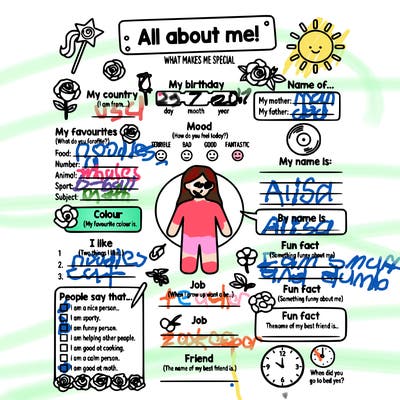 All about me!
WHAT MAKES ME SPECIAL
My country
(I am from...)
USA
My birthday
23-7-2017
day month year
Name of...
My mother: mom
My father: dad
My favourites
(What do you favorite?)
Food: noodles
Number:
Animal: whales
Sport: B-ball
Subject: math
Mood
(How do you feel today?)
TERRIBLE BAD GOOD FANTASTIC
My name is:
Alisa
By name is
Alisa
Colour
(My favourite colour is.
I like
(Two things I like)
1 noodles
2. cat
3.
Fun fact
(Something funny about me)
I am smart
and dumb
Fun fact
(Something funny about me)
Fun fact
Thename of my best friend is..
Job
(When I grow up I want to be...)
teacher
Job
zookeeper
Friend
(The name of my best friend is.)
People say that...
I am a nice person..
I am sporty.
I am funny person.
I am helping other people.
I am good at cooking.
I am a calm person.
I am good at math.
12
3
6
9
When did you
go to bed yes?